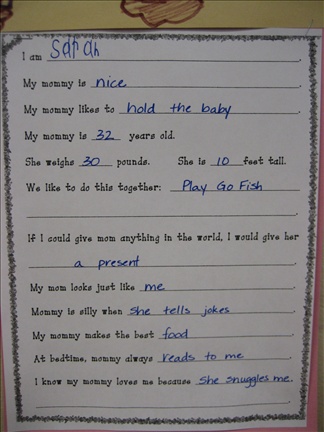 I am Sarah.
My mommy is nice.
My mommy likes to hold the baby.
My mommy is 32 years old.
She weighs 30 pounds. She is 10 feet tall.
We like to do this together: Play Go Fish
If I could give mom anything in the world, I would give her
a present.
My mom looks just like me.
Mommy is silly when she tells jokes.
My mommy makes the best food.
At bedtime, mommy always reads to me.
I know my mommy loves me because she snuggles me.